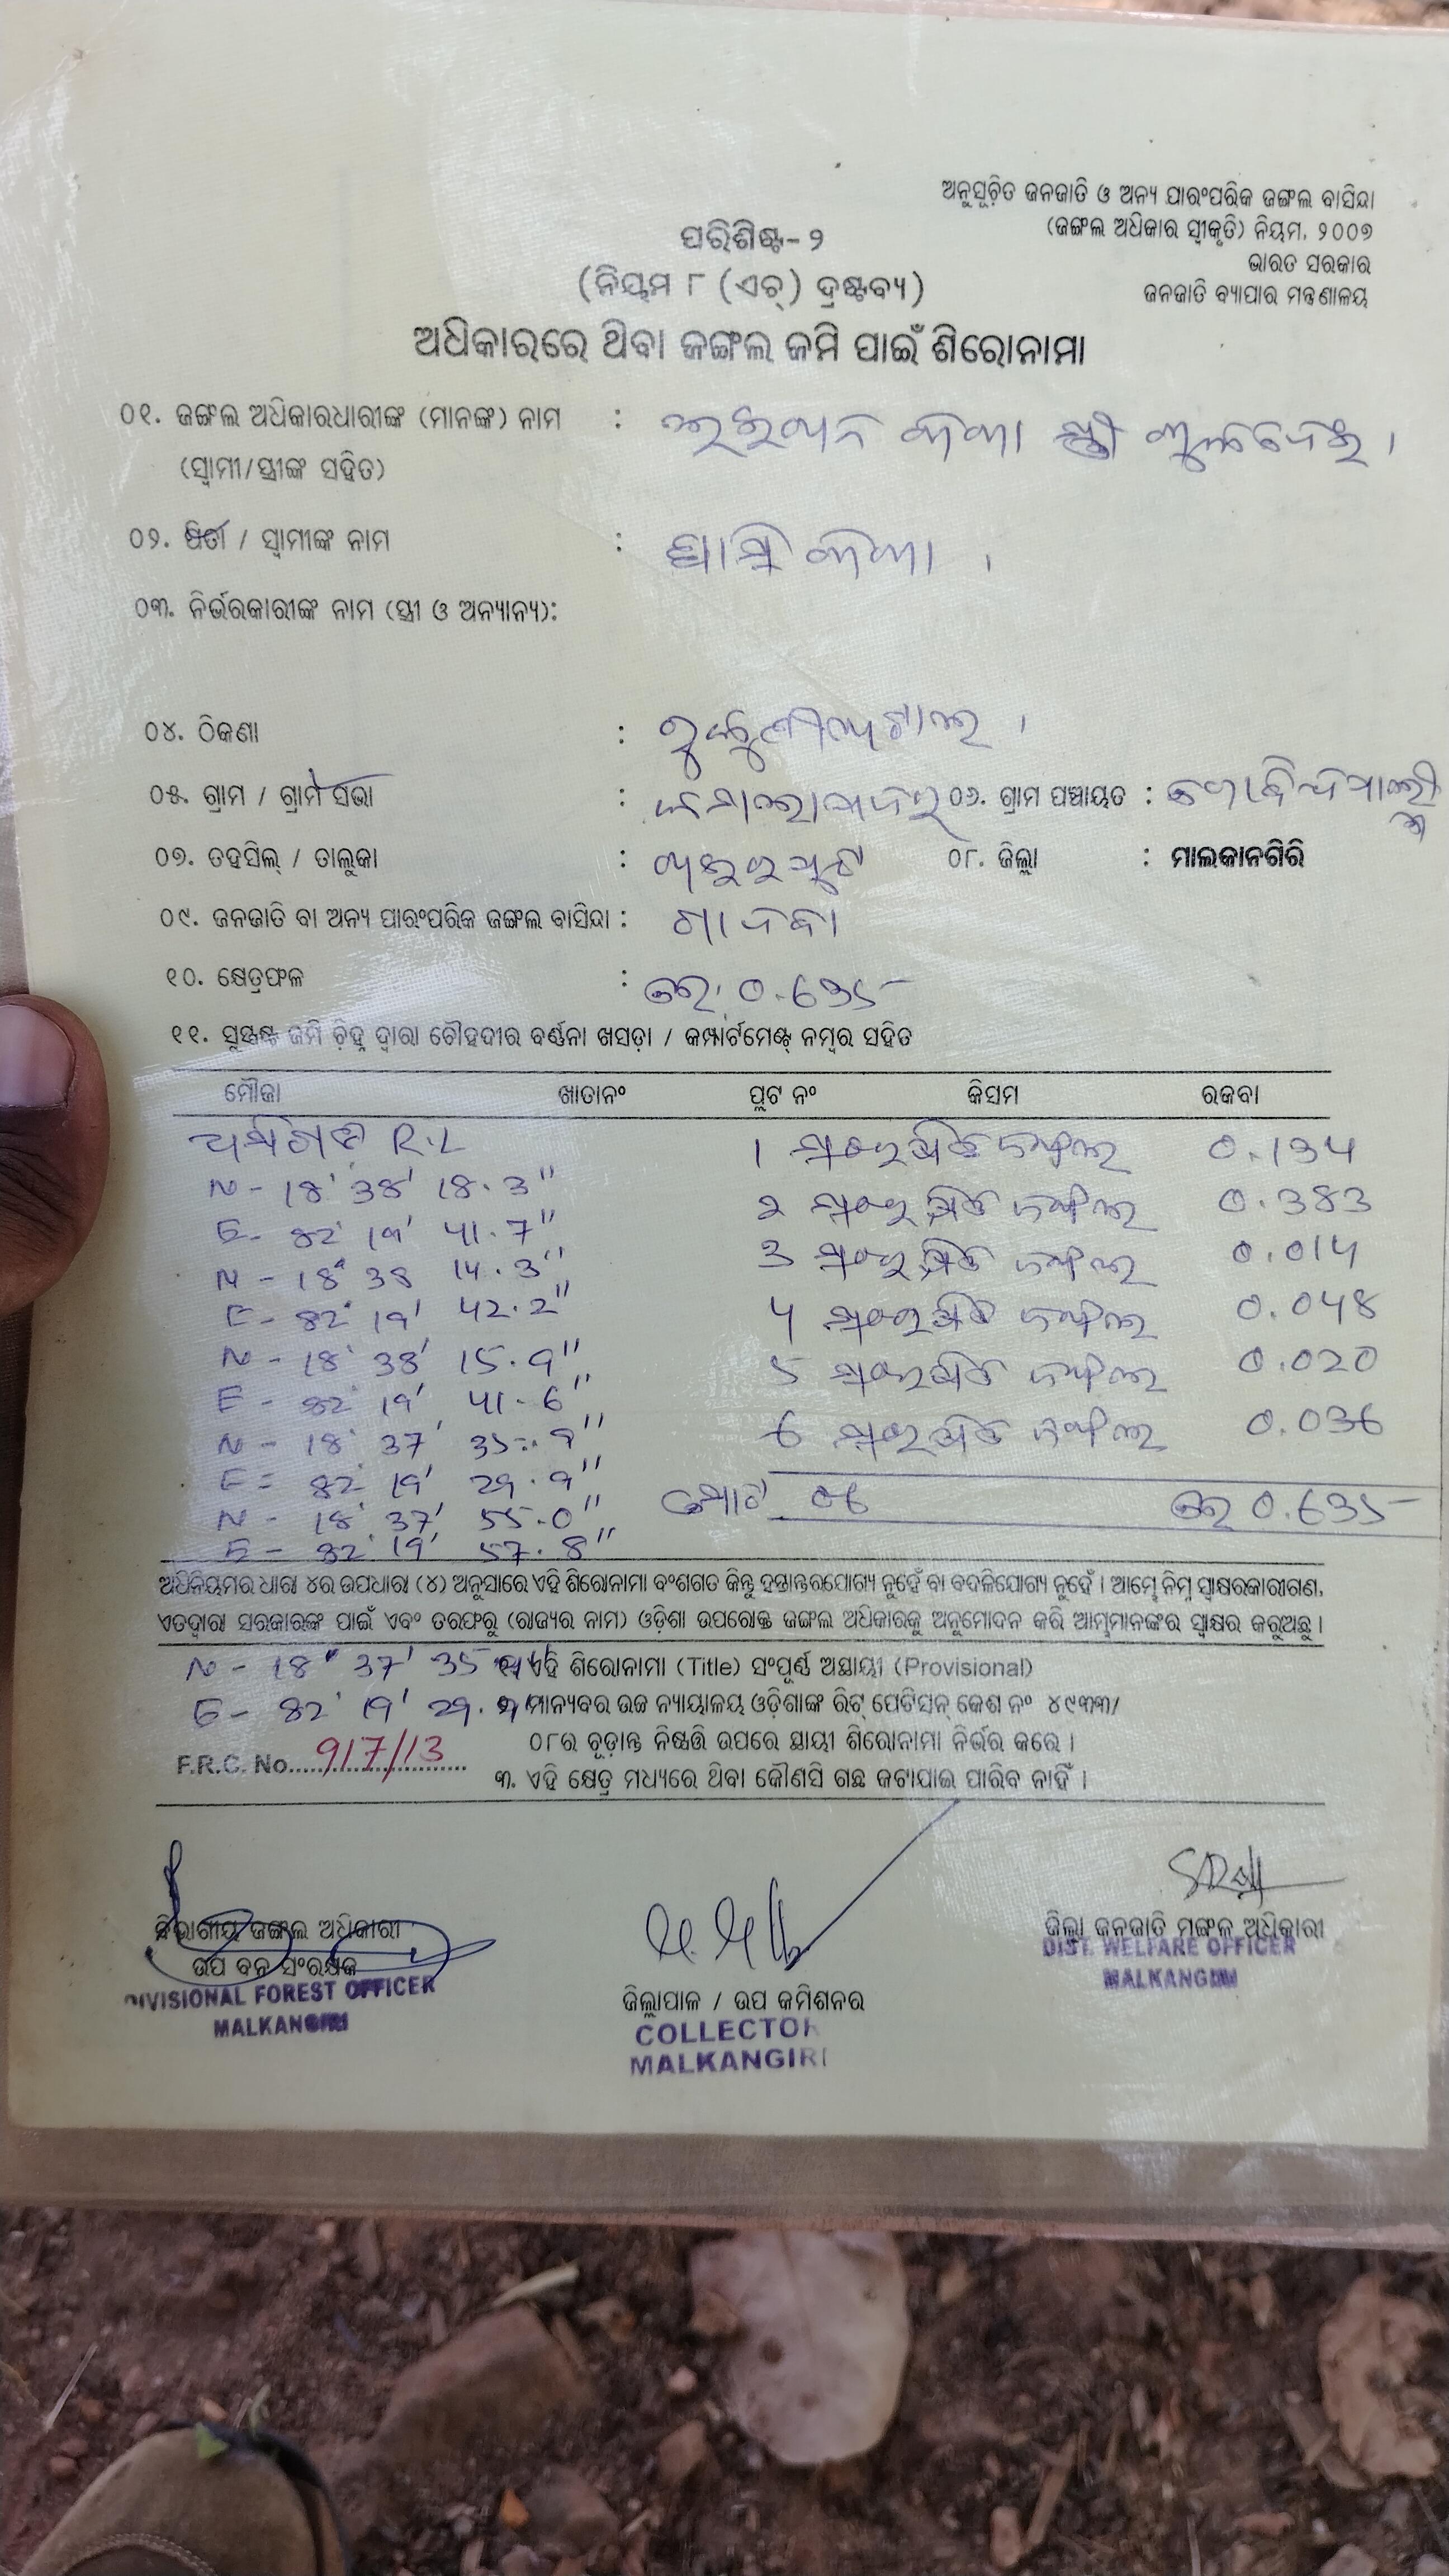 ଅନୁସୂଚିତ ଜନଜାତି ଓ ଅନ୍ୟ ପାରଂପରିକ ଜଙ୍ଗଲ ବାସିନ୍ଦା
(ଜଙ୍ଗଲ ଅଧିକାର ସ୍ୱୀକୃତି) ନିୟମ, ୨୦୦୭
ଭାରତ ସରକାର
ଜନଜାତି ବ୍ୟାପାର ମନ୍ତ୍ରଣାଳୟ
ପରିଶିଷ୍ଟ-୨
(ନିୟମ ୮ (ଏଚ୍) ଦ୍ରଷ୍ଟବ୍ୟ)
ଅଧିକାରରେ ଥିବା ଜଙ୍ଗଲ ଜମି ପାଇଁ ଶିରୋନାମା
୦୧. ଜଙ୍ଗଲ ଅଧିକାରଧାରୀଙ୍କ (ମାନଙ୍କ) ନାମ :
(ସ୍ୱାମୀ/ସ୍ତ୍ରୀଙ୍କ ସହିତ)
୦୨. ପିତା / ସ୍ୱାମୀଙ୍କ ନାମ :
୦୩. ନିର୍ଭରକାରୀଙ୍କ ନାମ (ସ୍ତ୍ରୀ ଓ ଅନ୍ୟାନ୍ୟ):
୦୪. ଠିକଣା :
୦୫. ଗ୍ରାମ / ଗ୍ରାମ ସଭା : ୦୬. ଗ୍ରାମ ପଞ୍ଚାୟତ :
୦୭. ତହସିଲ୍ / ତାଲୁକା : ୦୮. ଜିଲ୍ଲା : ମାଲକାନଗିରି
୦୯. ଜନଜାତି ବା ଅନ୍ୟ ପାରଂପରିକ ଜଙ୍ଗଲ ବାସିନ୍ଦା : ଗାଦବା
୧୦. କ୍ଷେତ୍ରଫଳ : ହେ. 0.635
୧୧. ସୁସ୍ପଷ୍ଟ ଜମି ଚିହ୍ନ ଦ୍ୱାରା ଚୌହଦୀର ବର୍ଣ୍ଣନା ଖସଡ଼ା / କମ୍ପାର୍ଟମେଣ୍ଟ୍ ନମ୍ବର ସହିତ
ମୌଜା ଖାତାନଂ ପ୍ଲଟ ନଂ କିସମ ରକବା
R.L 1 ଜଙ୍ଗଲ 0.134
N - 18° 38' 18.3"
E - 82° 19' 41.7" 2 ଜଙ୍ଗଲ 0.383
N - 18° 38 14.3" 3 ଜଙ୍ଗଲ 0.014
E - 82° 19' 42.2" 4 ଜଙ୍ଗଲ 0.048
N - 18° 38' 15.9" 5 ଜଙ୍ଗଲ 0.020
E - 82° 19' 41.6"
N - 18° 37' 35.9" 6 ଜଙ୍ଗଲ 0.036
E - 82° 19' 29.9"
N - 18° 37' 55.0" ମୋଟ 06 ହେ 0.635
E - 82° 19' 57.8"
ଅଧିନିୟମର ଧାରା ୪ର ଉପଧାରା (୪) ଅନୁସାରେ ଏହି ଶିରୋନାମା ବଂଶଗତ କିନ୍ତୁ ହସ୍ତାନ୍ତରଯୋଗ୍ୟ ନୁହେଁ ବା ବଦଳିଯୋଗ୍ୟ ନୁହେଁ । ଆମ୍ଭେ ନିମ୍ନ ସ୍ୱାକ୍ଷରକାରୀଗଣ,
ଏତଦ୍ୱାରା ସରକାରଙ୍କ ପାଇଁ ଏବଂ ତରଫରୁ (ରାଜ୍ୟର ନାମ) ଓଡ଼ିଶା ଉପରୋକ୍ତ ଜଙ୍ଗଲ ଅଧିକାରକୁ ଅନୁମୋଦନ କରି ଆମ୍ଭମାନଙ୍କର ସ୍ୱାକ୍ଷର କରୁଅଛୁ ।
N - 18° 37' 35 ଏହି ଶିରୋନାମା (Title) ସଂପୂର୍ଣ୍ଣ ଅସ୍ଥାୟୀ (Provisional)
E - 82° 19' 29. ମାନ୍ୟବର ଉଚ୍ଚ ନ୍ୟାୟାଳୟ ଓଡ଼ିଶାଙ୍କ ରିଟ୍ ପେଟିସନ୍ କେଶ ନଂ ୪୯୩୩/
୦୮ର ଚୂଡ଼ାନ୍ତ ନିଷ୍ପତ୍ତି ଉପରେ ସ୍ଥାୟୀ ଶିରୋନାମା ନିର୍ଭର କରେ ।
F.R.C. No. 917/13
୩. ଏହି କ୍ଷେତ୍ର ମଧ୍ୟରେ ଥିବା କୌଣସି ଗଛ କଟାଯାଇ ପାରିବ ନାହିଁ ।
ବିଭାଗୀୟ ଜଙ୍ଗଲ ଅଧିକାରୀ
ଉପ ବନ ସଂରକ୍ଷକ
DIVISIONAL FOREST OFFICER
MALKANGIRI
ଜିଲ୍ଲାପାଳ / ଉପ କମିଶନର
COLLECTOR
MALKANGIRI
ଜିଲ୍ଲା ଜନଜାତି ମଙ୍ଗଳ ଅଧିକାରୀ
DIST. WELFARE OFFICER
MALKANGIRI